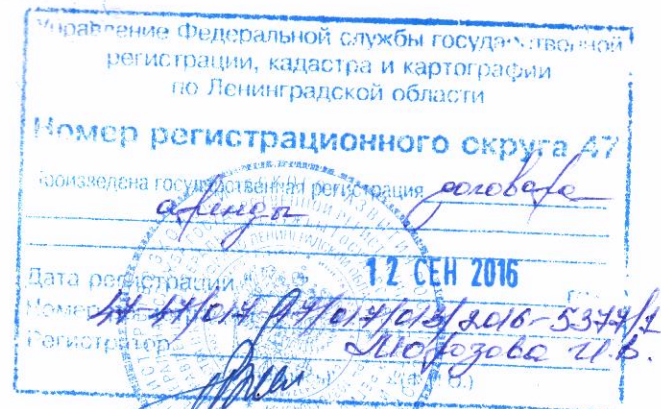 Управление Федеральной службы государственной
регистрации, кадастра и картографии
по Ленинградской области
Номер регистрационного округа 47
Произведена государственная регистрация договора
аренды
Дата регистрации 12 СЕН 2016
Номер 47-47/017-47/017/013/2016-5377/1
Регистратор Морозова И.В.